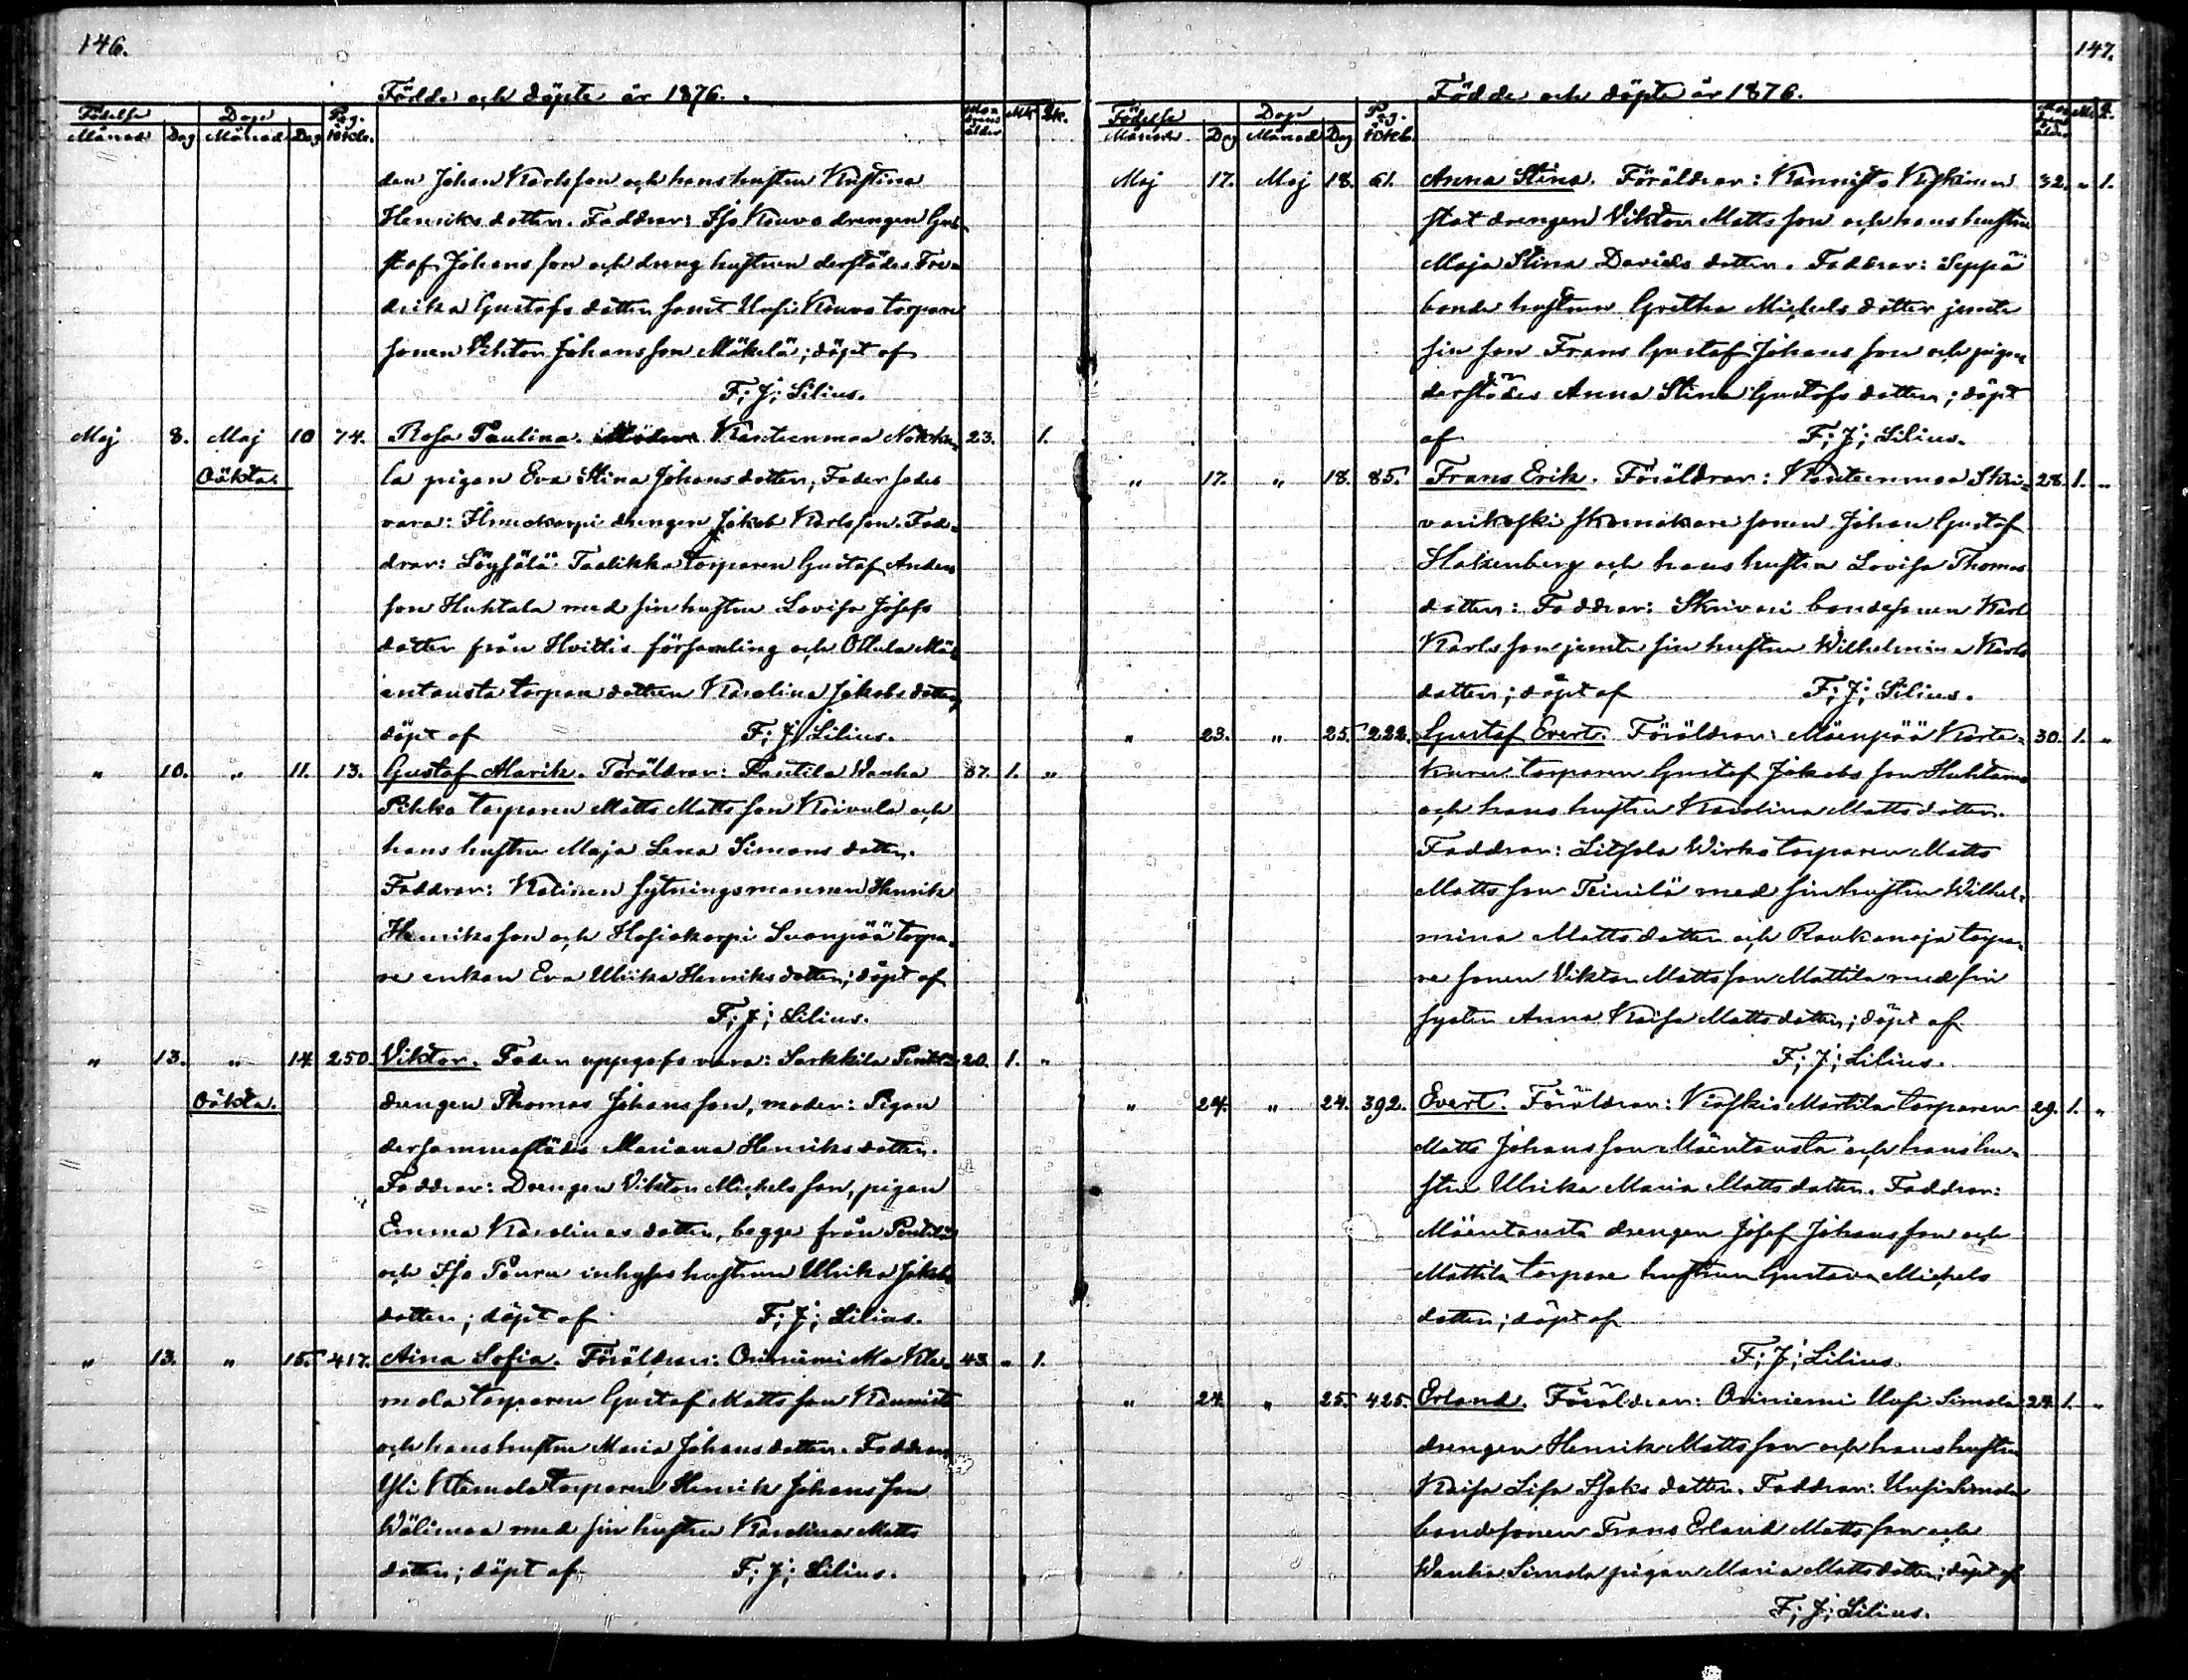 146.
Födde och döpte år 1876.
Födelse Dops Pag. i Mk
Månad Dag Månad Dag ålder
den Johan Karlsson och hans hustru Kristina
Henriksdotter. Faddrar: Iso Kouvo drengen Gu-
staf Johansson och dreng hustrun derstädes Fre-
drika Gustafsdotter samt Uusi Kouvo torpare
sonen Viktor Johansson Mäkelä; döpt af
F; J; Lilius.
Maj 8. Maj 10 74. Rosa Paulina. Kanteenmaa Nokka- 23. 1.
Oäkta. la pigan Eva Stina Johansdotter, Fader sades
vara: drengen Jakob Karlsson. Fad-
drar: Löysälä Taalikka torparen Gustaf Anders
son Huhtala med sin hustru Lovisa Josefs
dotter från Hvittis församling och Ollula Mä-
entausta torpare dottren Karolina Jakobsdotter,
döpt af F; J; Lilius.
" 10. " 11. 13. Gustaf Marik. Föräldrar: Wanha 37. 1. "
Pikka torparen Matts Mattsson Koivula och
hans hustru Maja Lena Simonsdotter.
Faddrar: Kalinen sytningsmannen Henrik
Henriksson och Hosiokorpi Suonpää torpa-
re enkan Eva Ulrika Henriksdotter; döpt af
F; J; Lilius.
" 13. " 14 250. Viktor. Fader uppgafs vara: Sarkkila Penttilä 20. 1. "
Oäkta. drengen Thomas Johansson, moder: Pigan
dersammastädes Mariana Henriksdotter.
Faddrar: Drengen Viktor Michelsson, pigan
Emma Karolinasdotter, begge från Penttilä
och Iso inhyses hustrun Ulrika Jakobs
dotter; döpt af F; J; Lilius.
" 13. " 15. 417. Aina Sofia. Föräldrar: Oriniemi Ala Kle- 43. " 1.
mola torparen Gustaf Mattsson Kannisto
och hans hustru Maria Johansdotter. Faddrar:
Yli Klemola torparen Henrik Johansson
Wälimaa med sin hustru Karolina Matts
dotter; döpt af F; J; Lilius.
147.
Födde och döpte år 1876.
Födelse Dops Pag. i
Månad Dag Månad Dag
Maj 17. Maj 18. 61. Anna Stina. Föräldrar: Kannisto 32. " 1.
stat drengen Viktor Mattsson och hans hustru
Maja Stina Davidsdotter. Faddrar: Seppä
bonde hustrun Gretha Michelsdotter jemte
sin son Frans Gustaf Johansson och pigan
derstädes Anna Stina Gustafsdotter; döpt
af F; J; Lilius.
" 17. " 18. 85. Frans Erik. Föräldrar: Kanteenmaa Skri- 28. 1. "
varikoski skomakare sonen Johan Gustaf
Hakenberg och hans hustru Lovisa Thomas
dotter: Faddrar: Skrivari bondesonen Karl
Karlsson jemte sin hustru Wilhelmina Karls
dotter; döpt af F; J; Lilius.
" 23. " 25. 222. Gustaf Evert. Föräldrar: Mäenpää 30. 1. "
torparen Gustaf Jakobsson Huhtamo
och hans hustru Karolina Mattsdotter.
Faddrar: Litsola Wirko torparen Matts
Mattsson Teinilä med sin hustru Wilhel-
mina Mattsdotter och Raukanoja torpa-
re sonen Viktor Mattsson Mattila med sin
syster Anna Kaisa Mattsdotter; döpt af
F; J; Lilius.
" 24. " 24. 392. Evert. Föräldrar: Martila torparen 29. 1. "
Matts Johansson Mäentausta och hans hu-
stru Ulrika Maria Mattsdotter. Faddrar:
Mäentausta drengen Josef Johansson och
Mattila torpare hustrun Gustava Michels
dotter; döpt af
F; J; Lilius.
" 24. " 25. 425. Erland. Föräldrar: Oriniemi Uusi Simola 24. 1. "
drengen Henrik Mattsson och hans hustru
Kaisa Lisa Isaksdotter. Faddrar: Uusi Simola
bondesonen Frans Erland Mattsson och
Wanha Simola pigan Maria Mattsdotter; döpt af
F; J; Lilius.